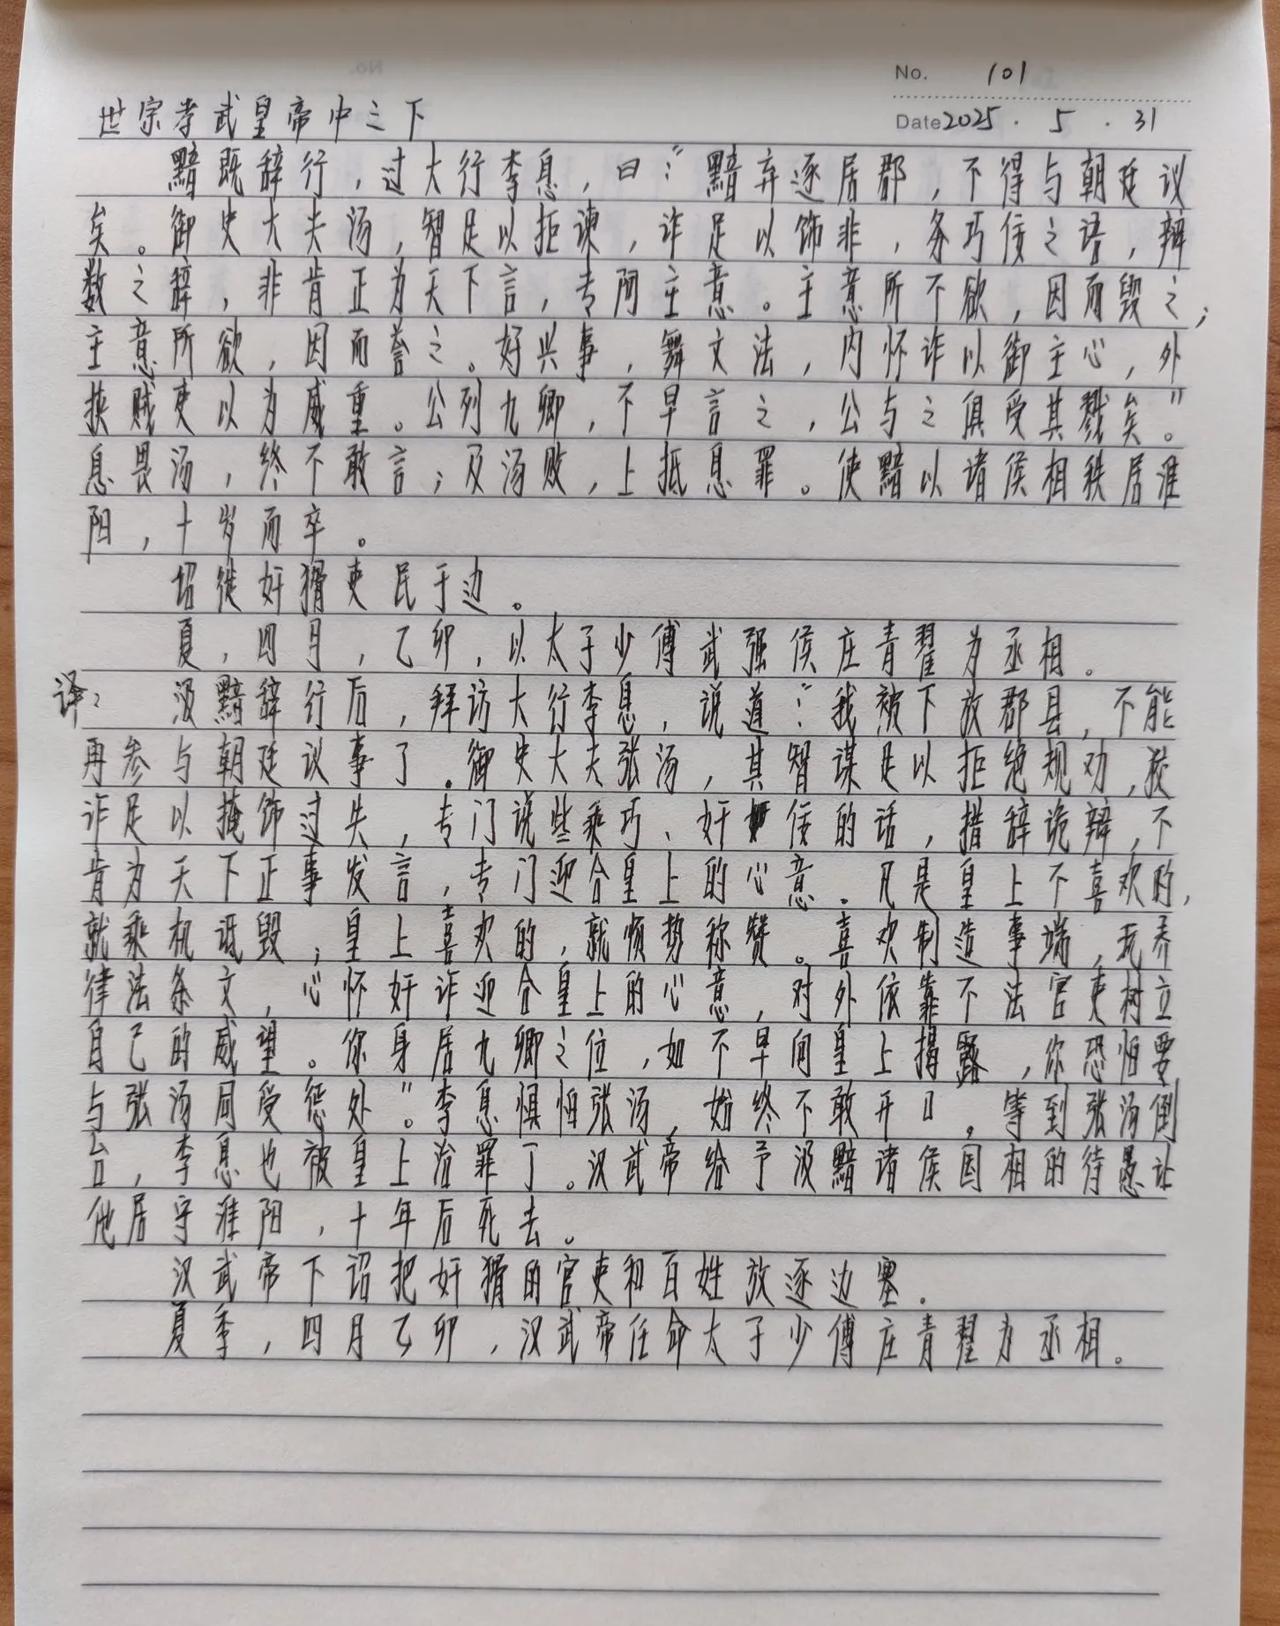 No. 101
世宗孝武皇帝中之下
Date 2025 . 5 . 31
黯既辞行，过大行李息，曰：“黯弃逐居郡，不得与朝廷议
矣。御史大夫汤，智足以拒谏，诈足以饰非，务巧佞之语，辩
数之辞，非肯正为天下言，专阿主意。主意所不欲，因而毁之；
主意所欲，因而誉之。好兴事，舞文法，内怀诈以御主心，外
挟贼吏以为威重。公列九卿，不早言之，公与之俱受其戮矣。”
息畏汤，终不敢言；及汤败，上抵息罪。使黯以诸侯相秩居淮
阳，十岁而卒。
诏徙奸猾吏民于边。
夏，四月，乙卯，以太子少傅武强侯庄青翟为丞相。
译：汲黯辞行后，拜访大行李息，说道：“我被下放郡县，不能
再参与朝廷议事了。御史大夫张汤，其智谋足以拒绝规劝，狡
诈足以掩饰过失，专门说些乘巧、奸佞的话，措辞诡辩，不
肯为天下正事发言，专门迎合皇上的心意。凡是皇上不喜欢的，
就乘机诋毁；皇上喜欢的，就顺势称赞。喜欢制造事端，玩弄
律法条文，心怀奸诈迎合皇上的心意，对外依靠不法官吏树立
自己的威望。你身居九卿之位，如不早向皇上揭露，你恐怕要
与张汤同受惩处。”李息惧怕张汤，始终不敢开口。等到张汤倒
台，李息也被皇上治罪了。汉武帝给予汲黯诸侯国相的待遇让
他居守淮阳，十年后死去。
汉武帝下诏把奸猾的官吏和百姓放逐边塞。
夏季，四月乙卯，汉武帝任命太子少傅庄青翟为丞相。